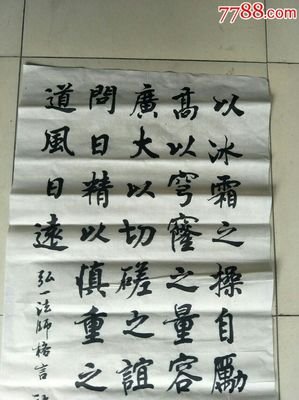 7788.com
以冰霜之操自勵
高以穹窿之量容
廣大以切磋之誼
問日精以慎重之
道風日遠
弘一法師格言